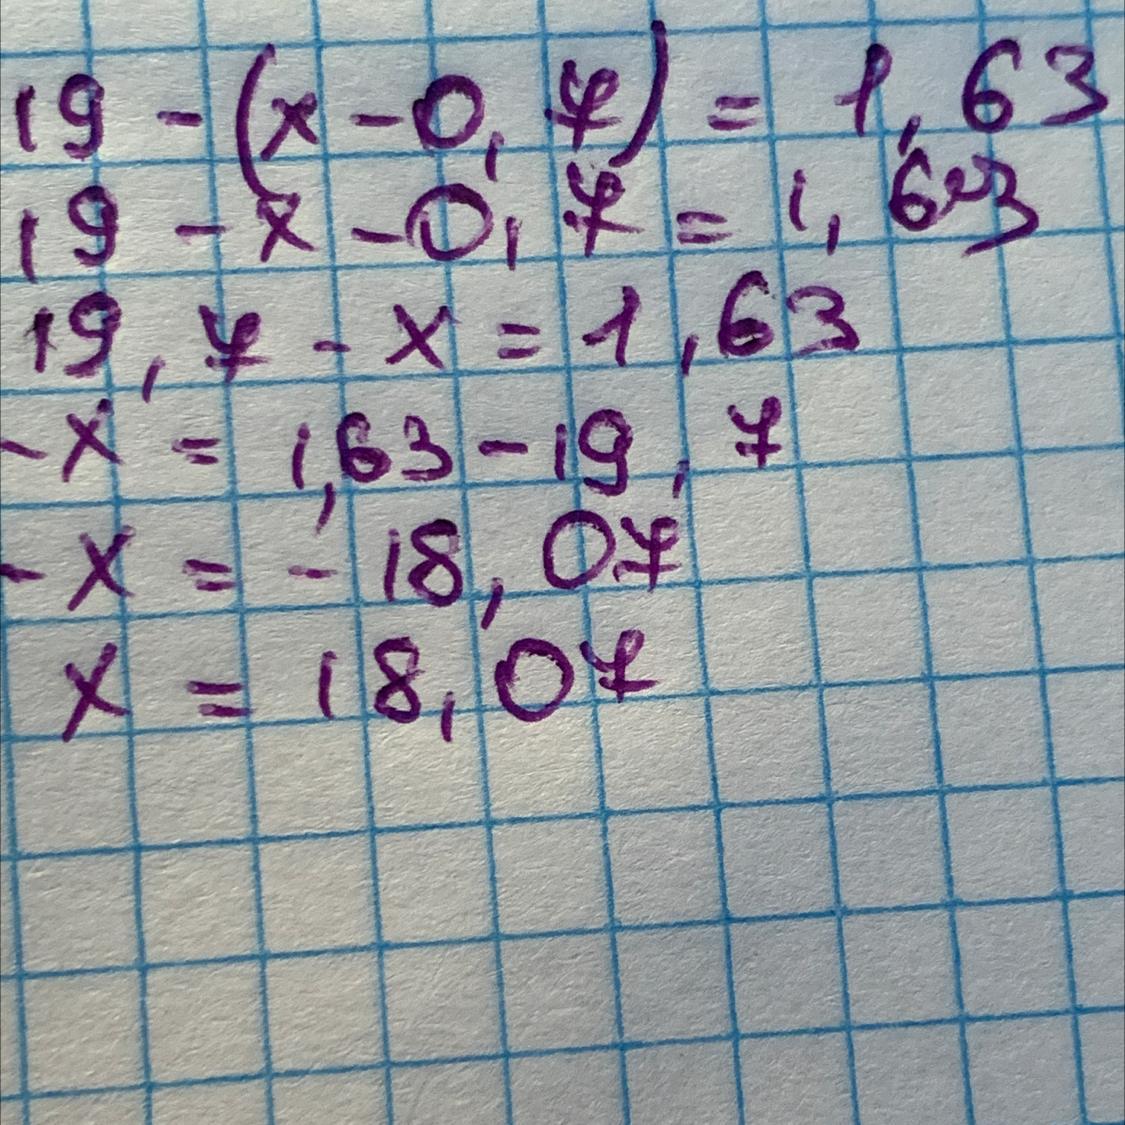 19 - (x - 0,7) = 1,63
19 - x - 0,7 = 1,63
19,7 - x = 1,63
- x = 1,63 - 19,7
- x = - 18,07
x = 18,07